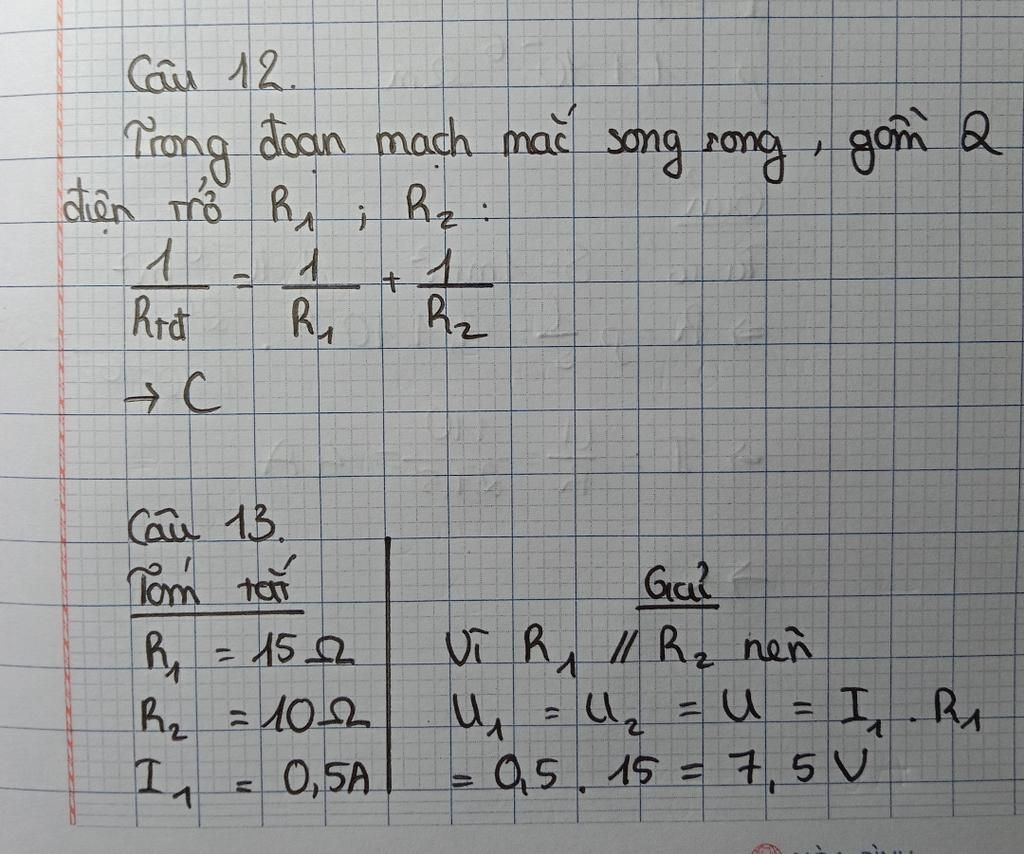 Câu 12.
Trong đoạn mạch mắc song song, gồm 2
điện trở R₁ ; R₂ :
1/Rtđ = 1/R₁ + 1/R₂
→ C
Câu 13.
Tóm tắt
R₁ = 15Ω
R₂ = 10Ω
I₁ = 0,5A
Giải
Vì R₁ // R₂ nên
U₁ = U₂ = U = I₁ . R₁
= 0,5 . 15 = 7,5 V